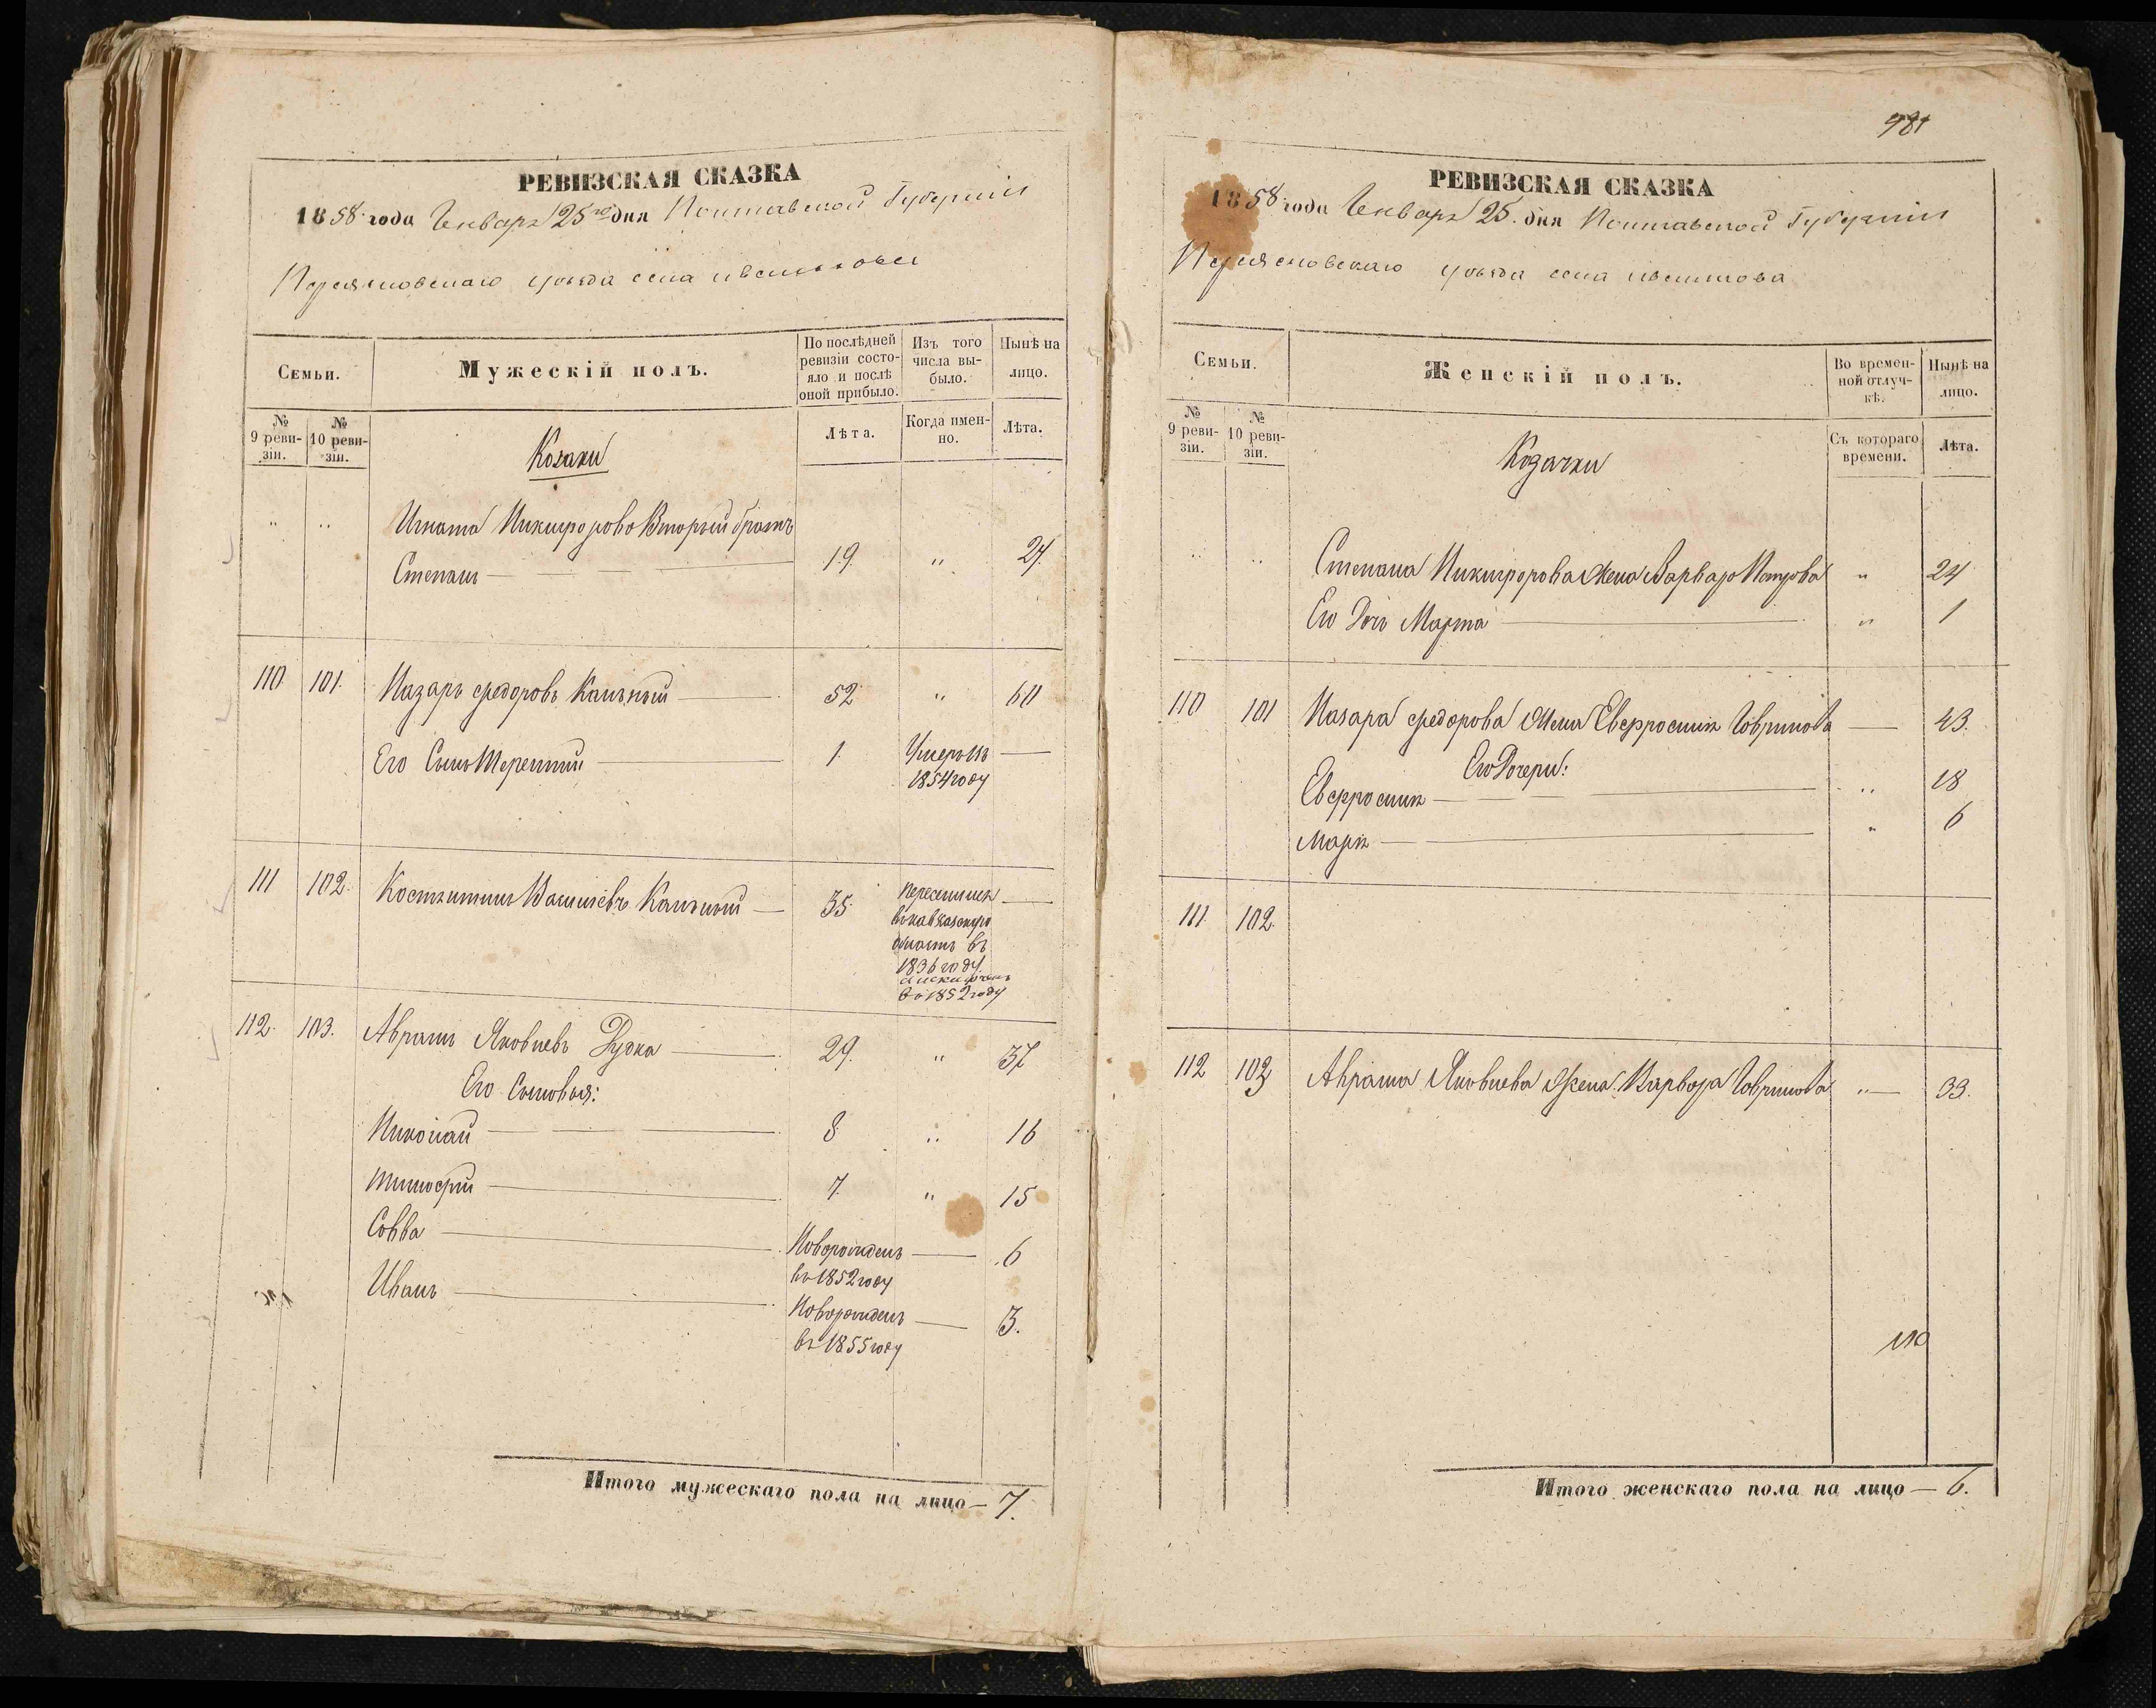 РЕВИЗСКАЯ СКАЗКА
1858 года Генваря 25го дня Полтавской Губернии
Переясловскаго уѣзда села
Семьи.
Мужескій полъ.
По послѣдней ревизіи состояло и послѣ оной прибыло.
Изъ того числа выбыло.
Нынѣ на лицо.
№ 9 ревизіи.
№ 10 ревизіи.
Козаки
Лѣта.
Когда именно.
Лѣта.
" " Игната Никифорова Вторый братъ
Степанъ 19. " 27.
110 101. Назаръ Федоровъ Кальный 52 " 60
Его Сынъ Терентий 1. Умеръ въ
1854 году
111 102. Костянтинъ Васильевъ Кальный 35 Переселился
въ кавказскую
область въ
1836 году.
а исключенъ
въ 1852 году
112. 103. Абрамъ Яковлевъ Дудка 29. " 37
Его Сыновья:
Николай 8. " 16
Тимофей 7. " 15
Совва Новорожденъ 6
въ 1852 году
Иванъ Новорожденъ 3.
въ 1855 году
Итого мужескаго пола на лицо — 7.
981
РЕВИЗСКАЯ СКАЗКА
1858 года Генваря 25. дня Полтавской Губернии
Переясловскаго уѣзда села
Семьи.
Женскій полъ.
Во временной отлучкѣ.
Нынѣ на лицо.
№ 9 ревизіи.
№ 10 ревизіи.
Козачки
Съ котораго времени.
Лѣта.
" " Степана Никифорова Жена Варвара Петрова " 24
Его Дочь Марта " 1
110 101 Назара Федорова Жена Евфросиния Гаврилова — 43.
Его Дочери:
Евфросиния " 18
Мария " 6
111. 102.
112 103 Абрама Яковлева Жена Варвара Гаврилова " 33.
Итого женскаго пола на лицо — 6.